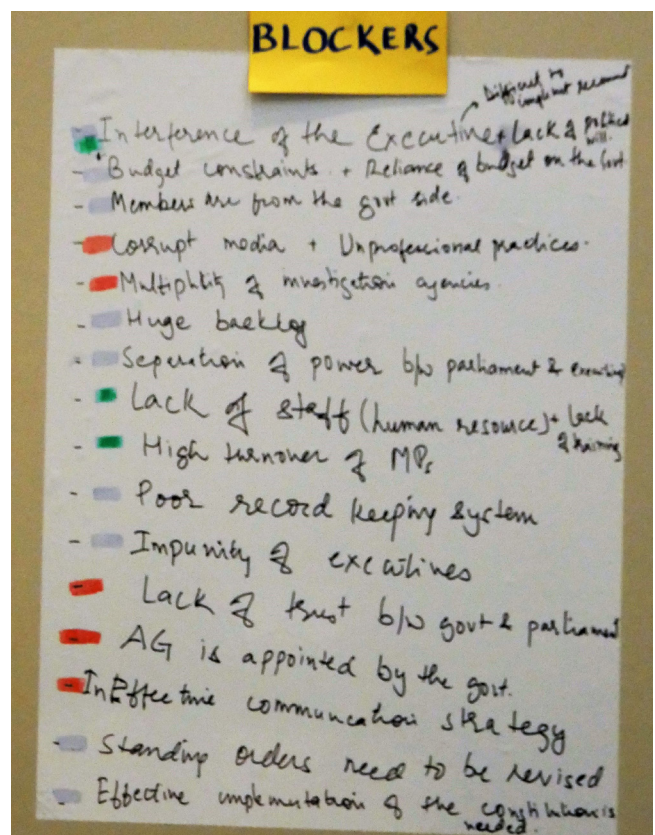 BLOCKERS
Difficult to
implement recommend
Interference of the Executive + Lack of political
will.
- Budget constraints + Reliance of budget on the Govt.
- Members are from the govt side.
- Corrupt media + Unprofessional practices.
- Multiplity of investigation agencies.
- Huge backlog
- Seperation of power b/w parliament & executive
- Lack of staff (human resource) + Lack
of training
- High turnover of MPs
- Poor record keeping system
- Impunity of executives
- Lack of trust b/w govt & parliament
- AG is appointed by the govt.
- InEffective communcation strategy
- Standing orders need to be revised
- Effective implementation of the constitution is
needed.